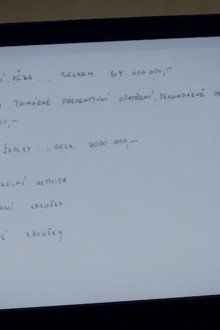 , VĚDA ... CELKEM 64 000 000,-
, PRIMÁRNĚ PREVENTIVNÍ OPATŘENÍ, SEKUNDÁRNĚ
00,-
ŠKOLKY ... CELK. 4000 000,-
AKTIVITA
KROUŽKY
KROUŽKY